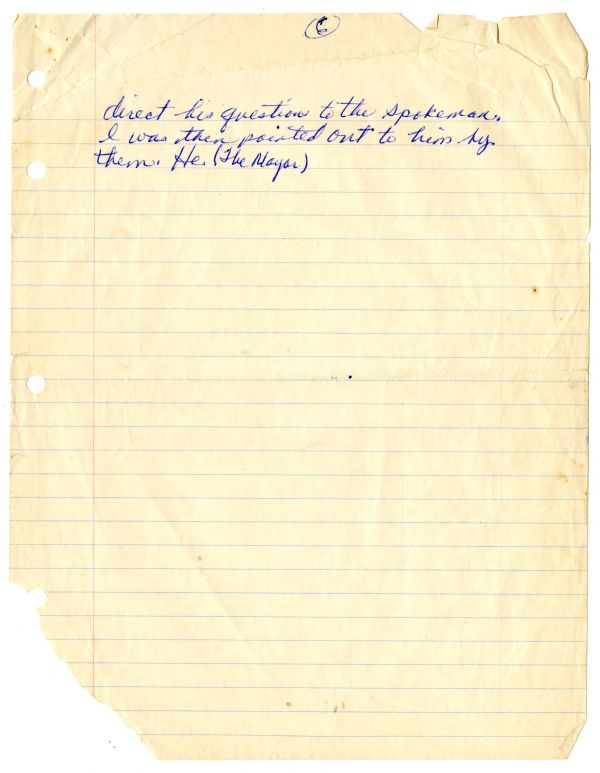 6
direct his question to the spokeman.
I was then pointed out to him by
them. He. (The Mayor)